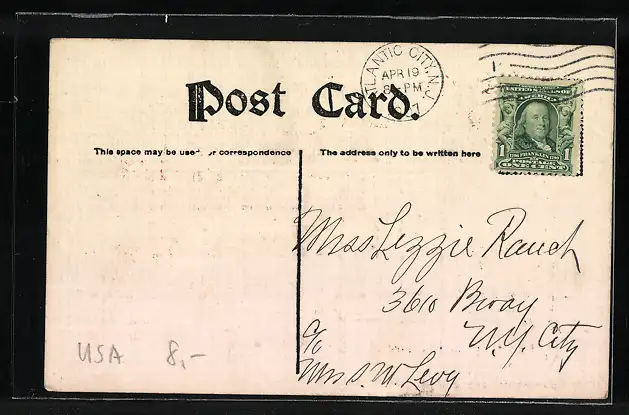 ATLANTIC CITY, N.J.
APR 19
8 PM
Post Card.
This space may be used or correspondence
The address only to be written here
UNITED STATES OF
1 1706 FRANKLIN 1790 1
POSTAGE
ONE CENT
Miss Lizzie Rauch
3610 Bway
N.Y. City
c/o
Mrs S. W. Levy
USA 8,-